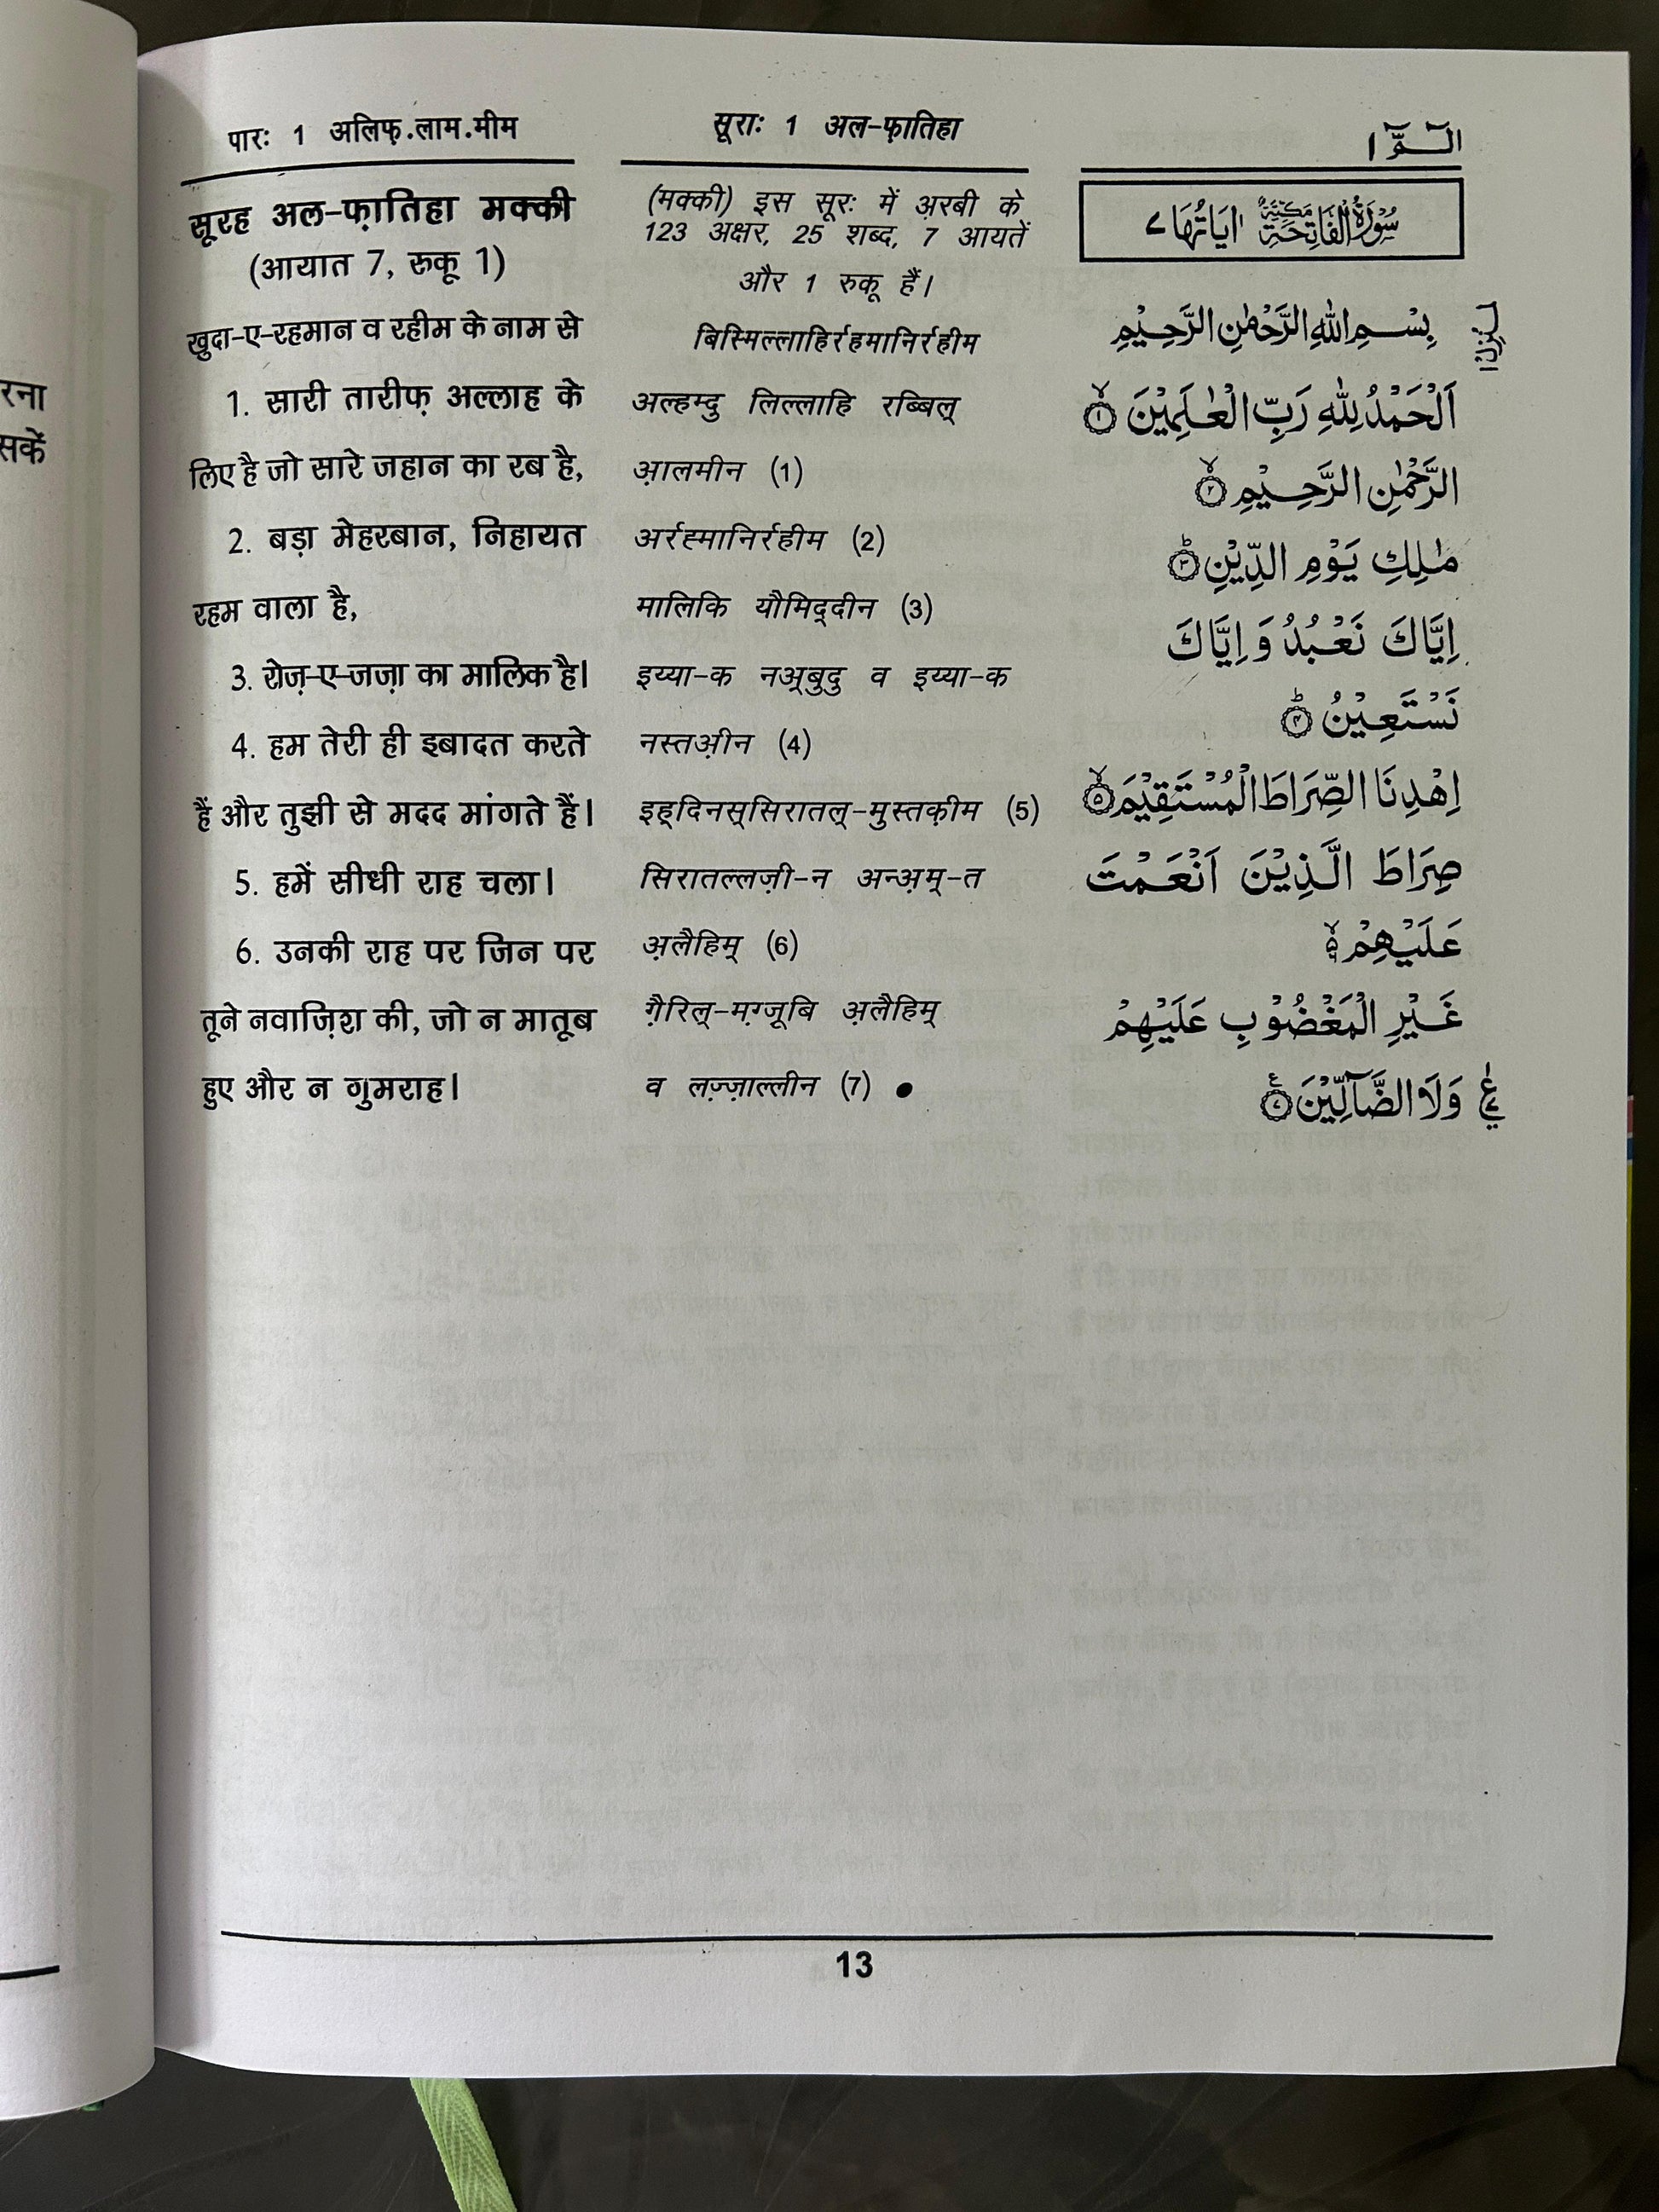 रना
सकें
पारः 1 अलिफ़.लाम.मीम
सूरह अल-फ़ातिहा मक्की
(आयात 7, रुकू 1)
खुदा-ए-रहमान व रहीम के नाम से
1. सारी तारीफ़ अल्लाह के
लिए है जो सारे जहान का रब है,
2. बड़ा मेहरबान, निहायत
रहम वाला है,
3. रोज़-ए-जज़ा का मालिक है।
4. हम तेरी ही इबादत करते
हैं और तुझी से मदद मांगते हैं।
5. हमें सीधी राह चला।
6. उनकी राह पर जिन पर
तूने नवाज़िश की, जो न मातूब
हुए और न गुमराह।
सूराः 1 अल-फ़ातिहा
(मक्की) इस सूरः में अ़रबी के
123 अक्षर, 25 शब्द, 7 आयतें
और 1 रुकू हैं।
बिस्मिल्लाहिर्रहमानिर्रहीम
अल्हम्दु लिल्लाहि रब्बिल्
आ़लमीन (1)
अर्रह्मानिर्रहीम (2)
मालिकि यौमिद्दीन (3)
इय्या-क नअ़्बुदु व इय्या-क
नस्तअ़ीन (4)
इह्दिनस्सिरातल्-मुस्तक़ीम (5)
सिरातल्लज़ी-न अन्अ़म्-त
अ़लैहिम् (6)
ग़ैरिल्-मग़्जूबि अ़लैहिम्
व लज़्ज़ाल्लीन (7) ●
الٓـمّٓ ١
سُوْرَةُ الْفَاتِحَةِ مَكِّيَّةٌ اٰيَاتُهَا ٧
بِسْـمِ اللّٰهِ الرَّحْمٰنِ الرَّحِـيْمِ
اَلْحَمْدُ لِلّٰهِ رَبِّ الْعٰلَمِيْنَ ۙ‏ ١
الرَّحْمٰنِ الرَّحِـيْمِ ۙ‏ ٢
مٰلِكِ يَوْمِ الدِّيْنِ ؕ‏ ٣
اِيَّاكَ نَعْبُدُ وَ اِيَّاكَ
نَسْتَعِيْنُ ؕ‏ ٤
اِهْدِنَا الصِّرَاطَ الْمُسْتَقِيْمَ ۙ‏ ٥
صِرَاطَ الَّذِيْنَ اَنْعَمْتَ
عَلَيْهِمْ ۙ
غَيْرِ الْمَغْضُوْبِ عَلَيْهِمْ
وَلَا الضَّآلِّيْنَ ٧ ع
13